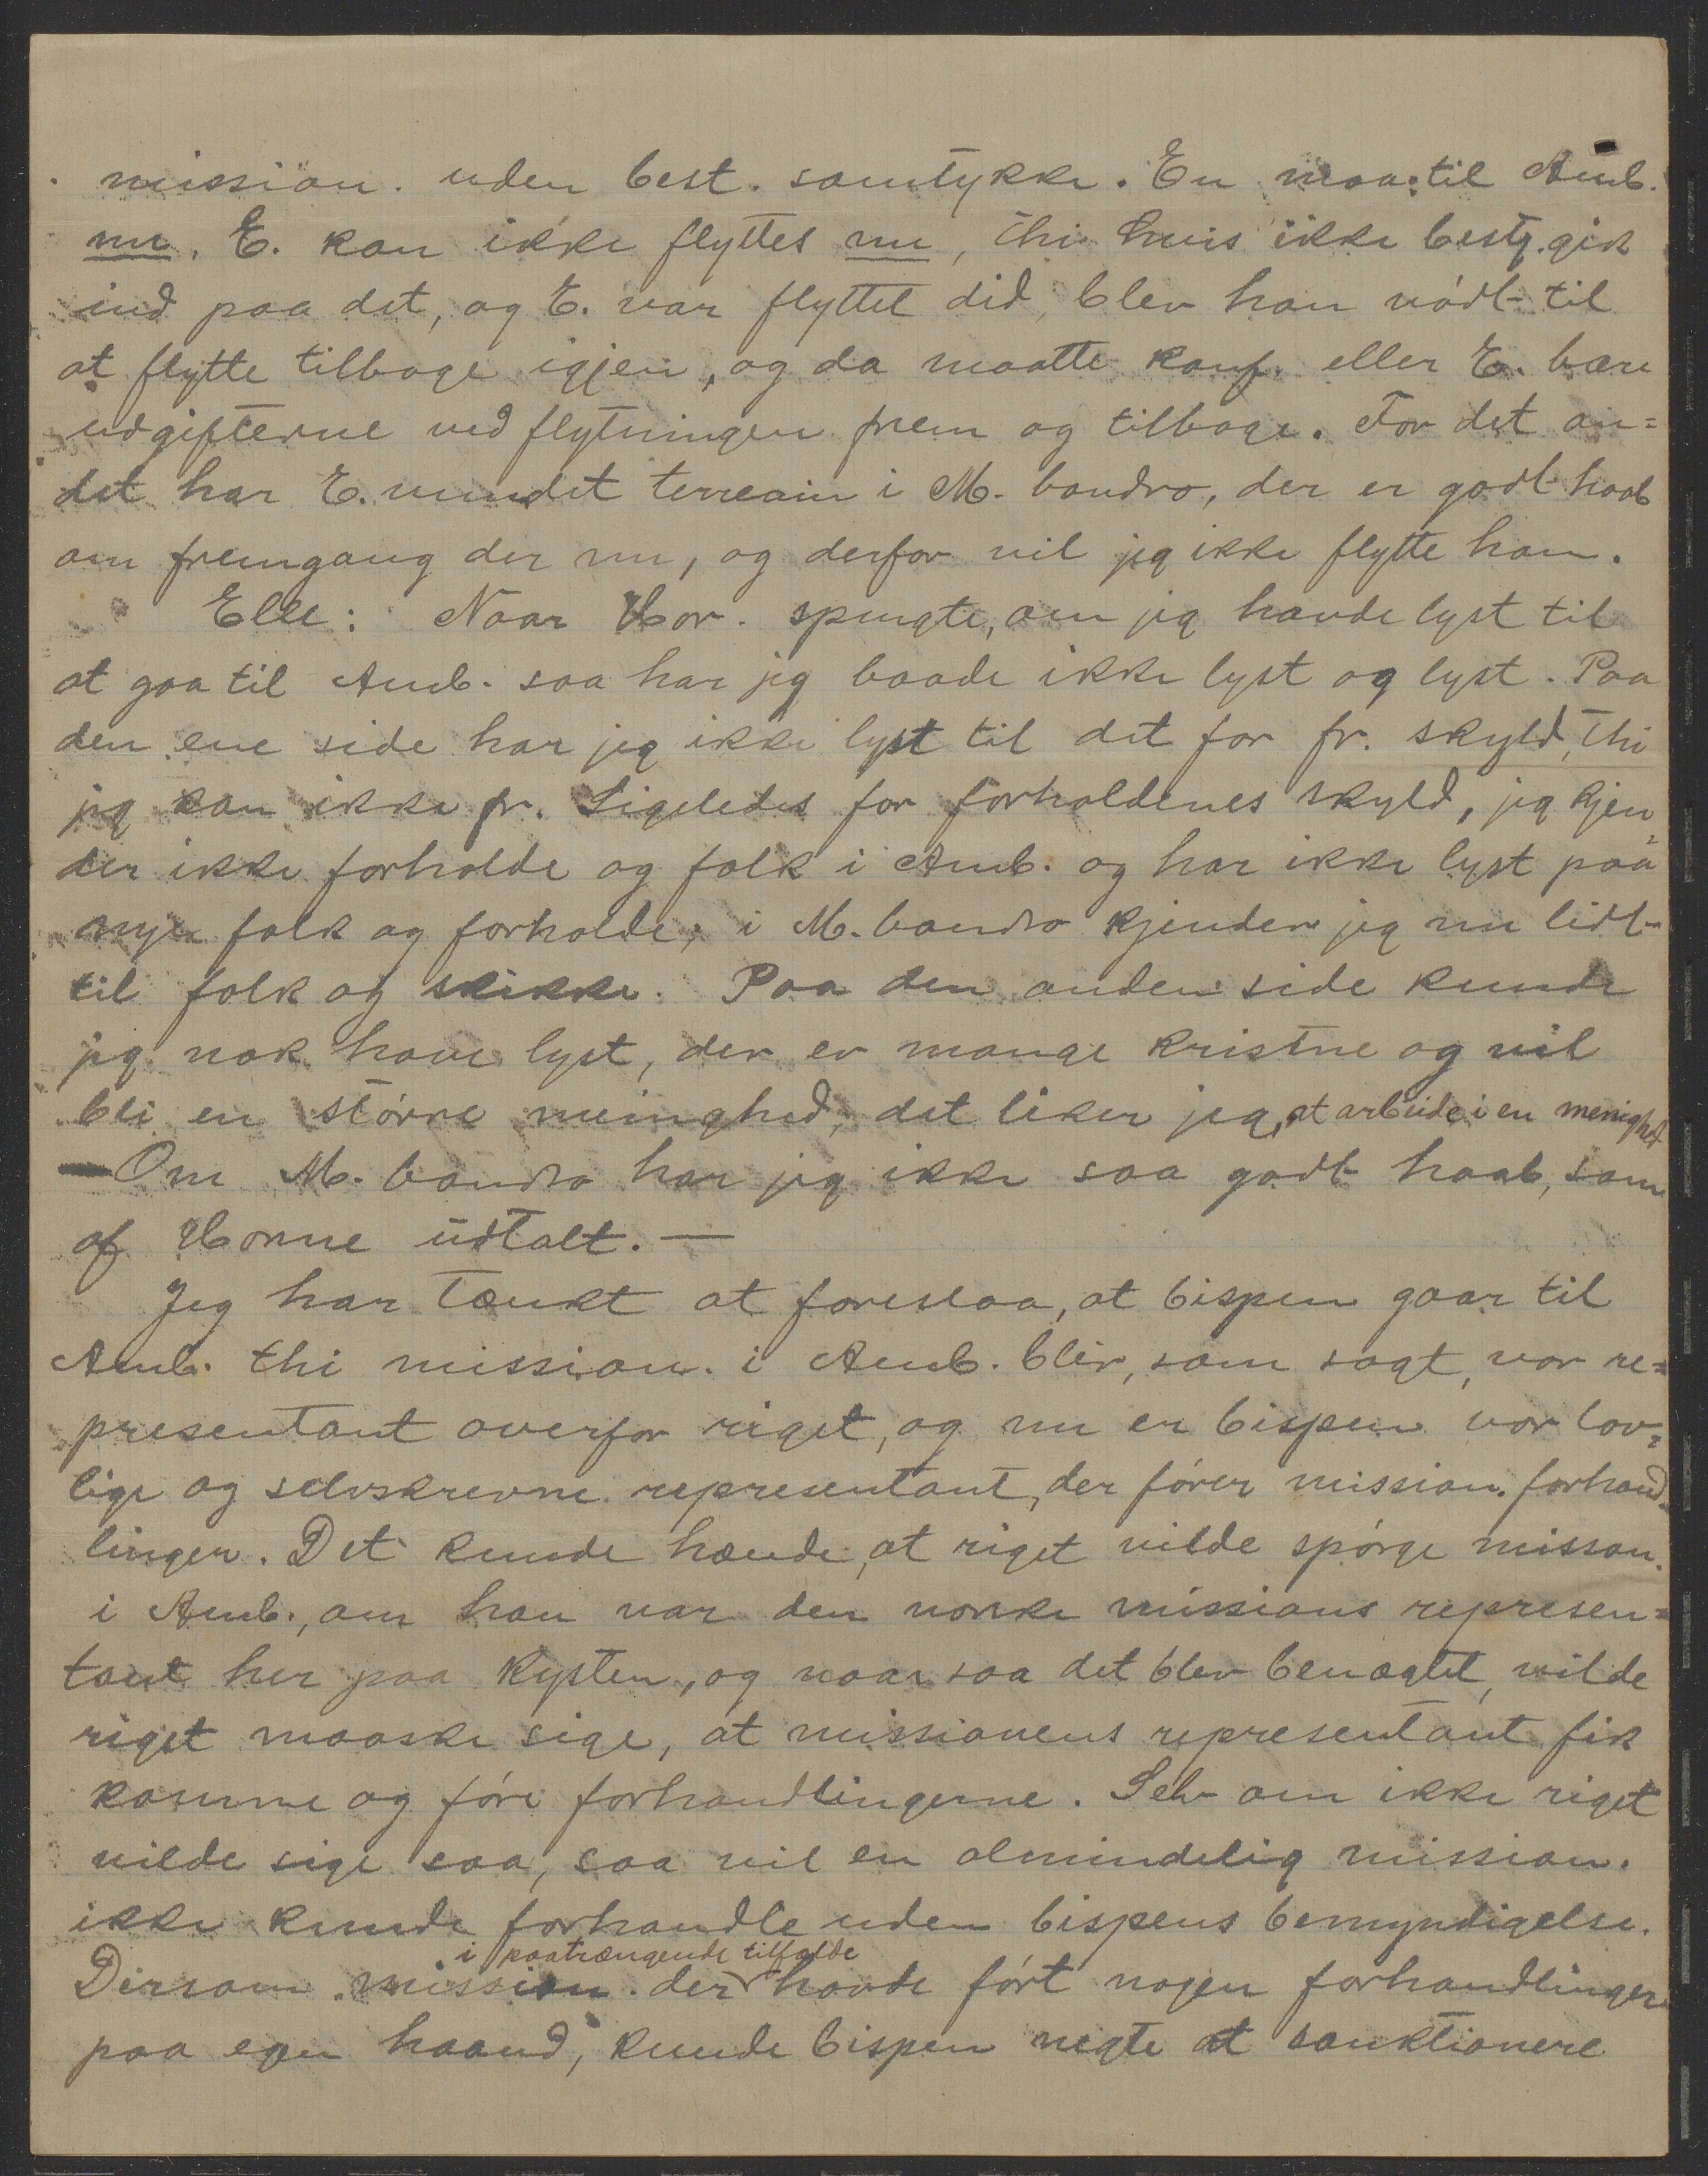 mission. uden best. samtykke. En maa til Amb.
nu. E. kan ikke flyttes nu, thi hvis ikke besty. gik
ind paa det, og E. var flyttet did, blev han nödt til
at flytte tilbage igjen, og da maatte konf. eller E. bære
udgifterne ved flytningen frem og tilbage. For det an=
det har E. vundet terreain i M. bondro, der er godt haab
om fremgang der nu, og derfor vil jeg ikke flytte ham.
Elle: Naar Hor. spurgte, om jeg havde lyst til
at gaa til Amb. saa har jeg baade ikke lyst og lyst. Paa
den ene side har jeg ikke lyst til det for fr. skyld, thi
jeg kan ikke fr. Ligeledes for forholdenes skyld, jeg kjen=
der ikke forholde og folk i Amb. og har ikke lyst paa
nye folk og forholde; i M. bondro kjender jeg nu lidt
til folk og skikke. Paa den anden side kunde
jeg nok have lyst, der er mange kristne og vil
bli en större meinghed, det liker jeg, at arbeide i en menighed
Om M. bondro har jeg ikke saa godt haab, som
af Horne udtalt. —
Jeg har tænkt at foreslaa, at bispen gaar til
Amb. thi mission. i Amb. blir, som sagt, vor re=
presentant overfor riget, og nu er bispen vor lov=
lige og selvskrevne representant, der förer mission. forhand=
linger. Det kunde hænde, at riget vilde spörge misson.
i Amb., om han var den norske missions represen=
tant her paa Kysten, og naar saa det blev benægtet, vilde
riget maaske sige, at missionens representant fik
komme og före forhandlingerne. Selv om ikke riget
vilde sige saa, saa vil en almindelig mission.
ikke kunde forhandle uden bispens bemyndigelse.
i paatrængende tilfælde
Dersom mission. der havde fört nogen forhandlinger
paa egen haand, kunde bispen negte at sanktionere